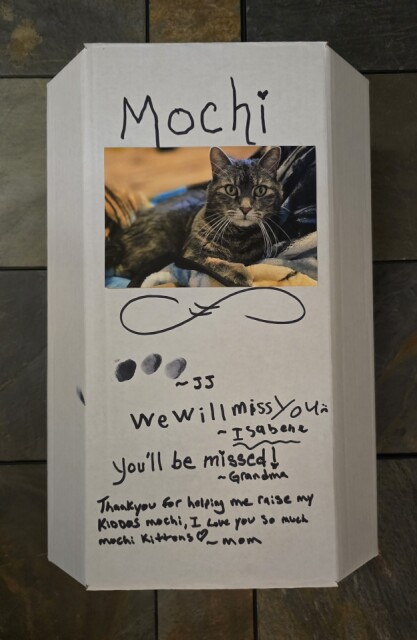 Mochi
~JJ
We Will miss you
~Isabelle
you'll be missed!
~Grandma
Thankyou for helping me raise my
KIDDOS mochi, I Love you so much
mochi Kittons ♡ ~ mom